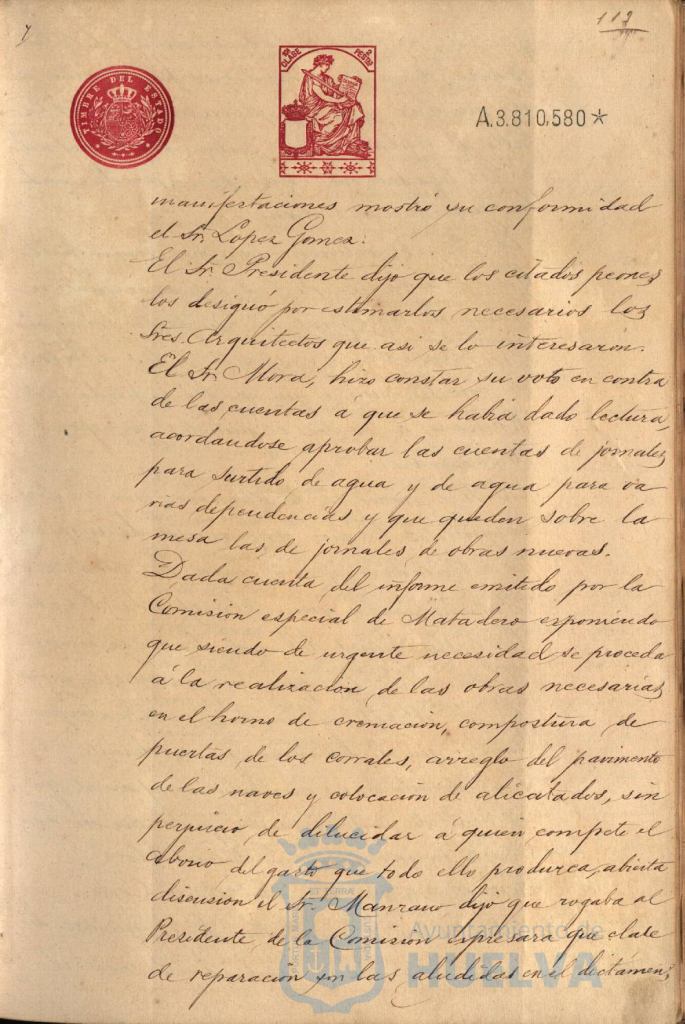 113
TIMBRE DEL ESTADO
CLASE
2
PESETAS
A.3.810,580*
manifestaciones mostró su conformidad
el Sr. Lopez Gomez.
El Sr. Presidente dijo que los citados peones
los designó por estimarlos necesarios los
Sres. Arquitectos que asi se lo interesaron.
El Sr. Mora, hizo constar su voto en contra
de las cuentas á que se habia dado lectura,
acordandose aprobar las cuentas de jornales
para surtido de agua y de agua para va
rias dependencias y que queden sobre la
mesa las de jornales de obras nuevas.
Dada cuenta del informe emitido por la
Comision especial de Matadero exponiendo
que siendo de urgente necesidad se proceda
á la realizacion de las obras necesarias
en el horno de cremacion, compostura de
puertas de los corrales, arreglo del pavimento
de las naves y colocacion de alicatados, sin
perjuicio de dilucidar á quien compete el
abono del gasto que todo ello produzca, abierta
discusion el Sr. Manzano dijo que rogaba al
Presidente de la Comision espresara que clase
de reparacion son las aludidas en el dictamen,
Ayuntamiento de
HUELVA